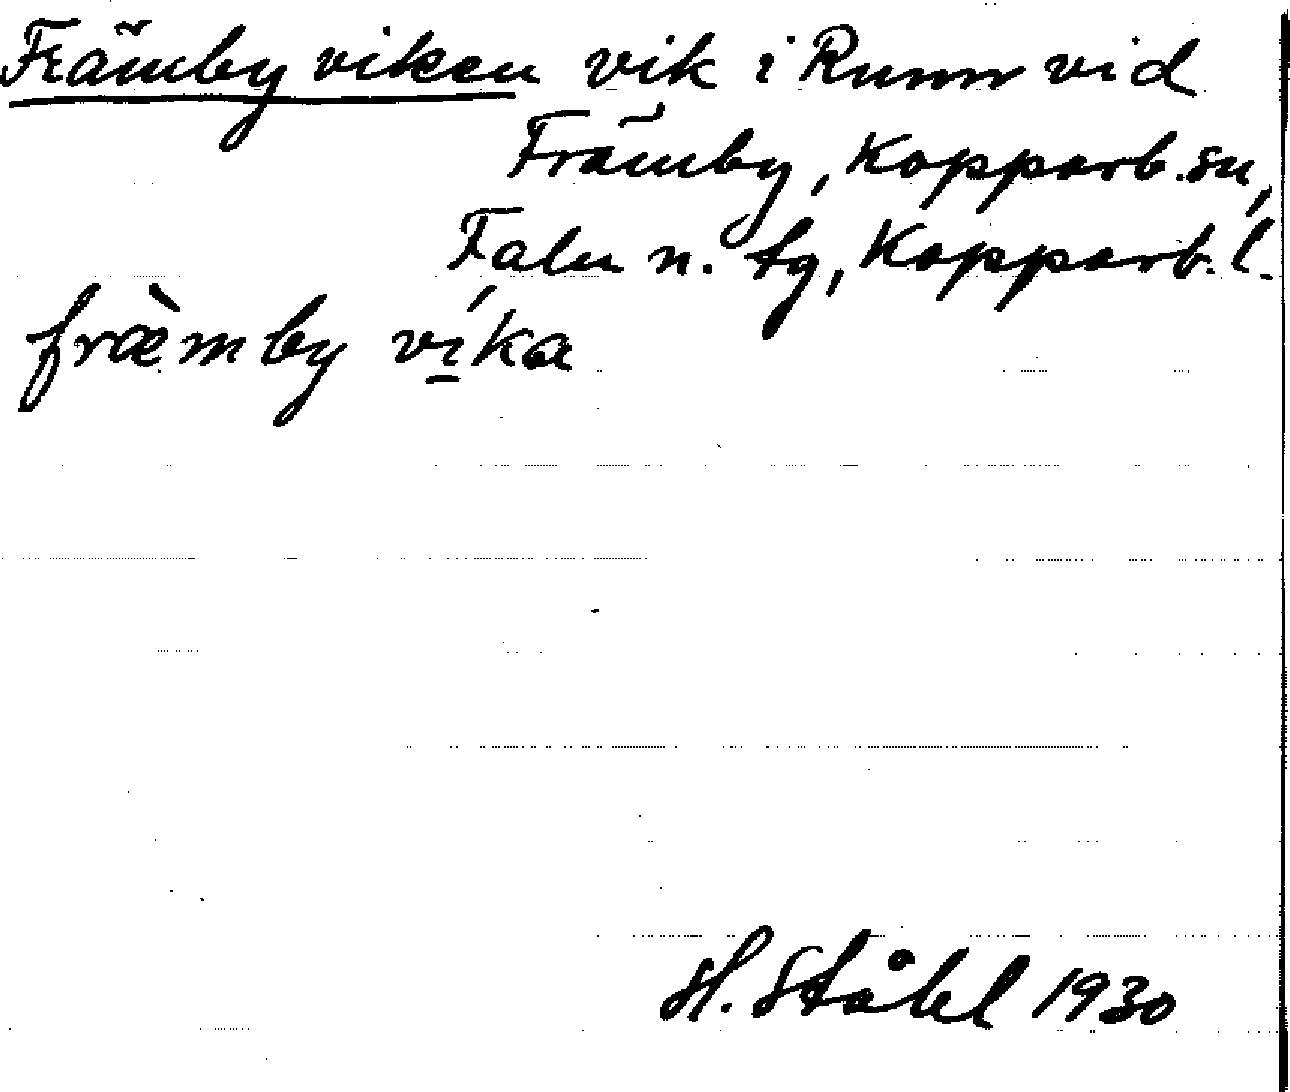 Främby viken vik i Runn vid
Främby, Kopparb. sn,
Falu n. tg, Kopparb. l.
fræ̀mby ví̲ka
H. Ståhl 1930